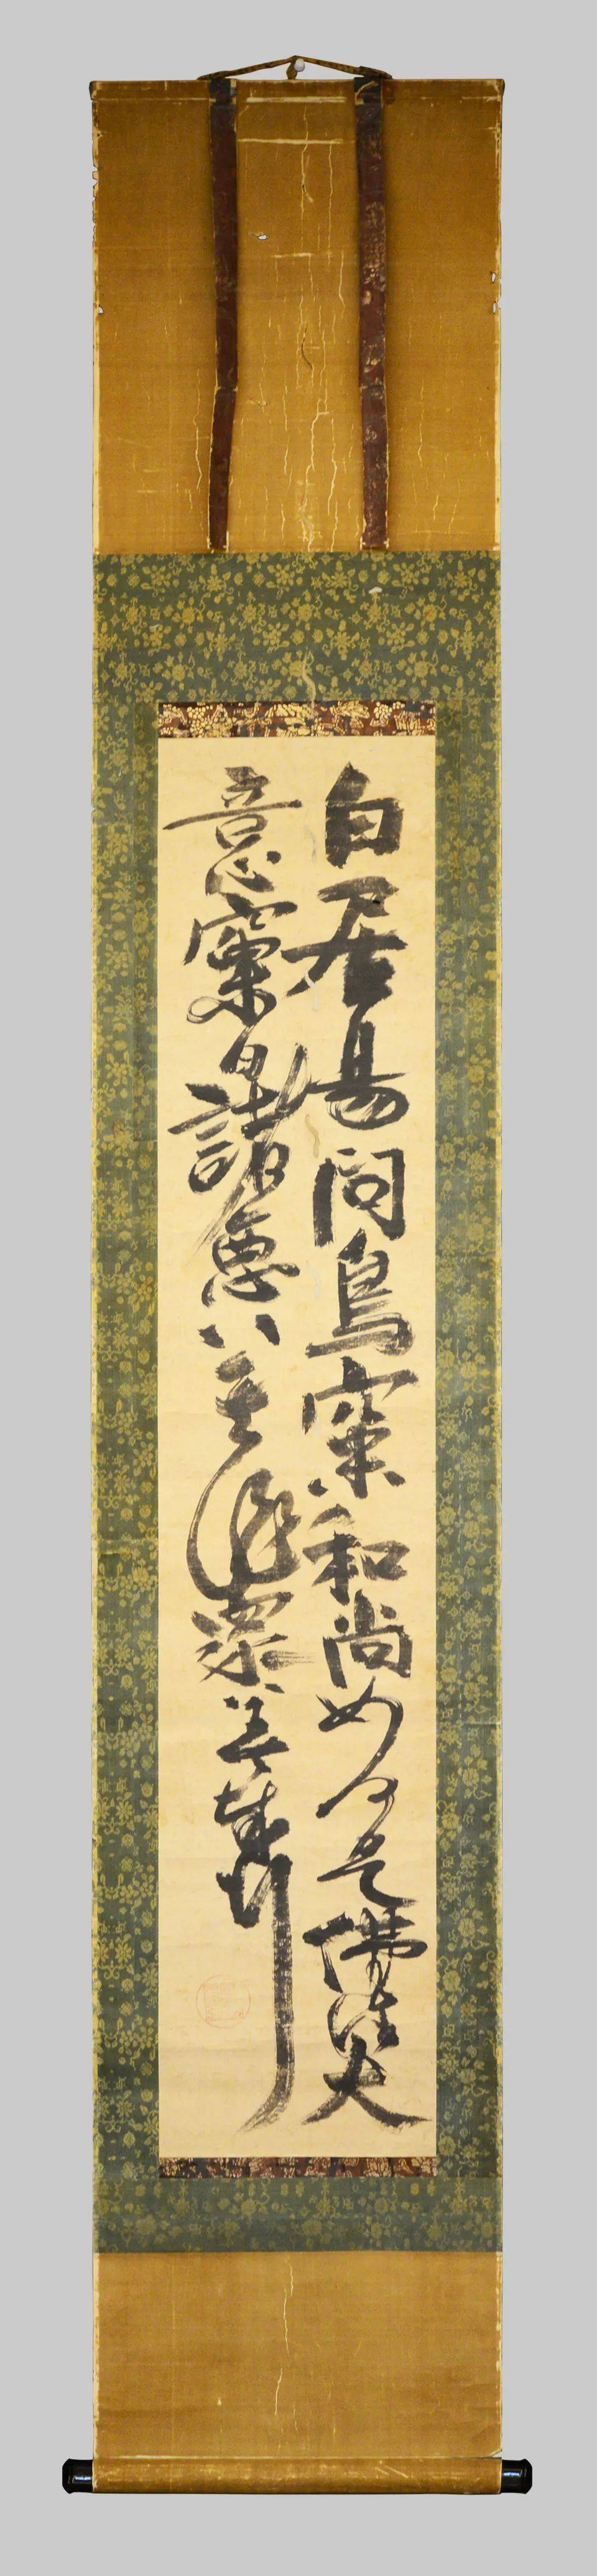 白居易問鳥窠和尚如何是佛法大
意窠曰諸惡莫作衆善奉行